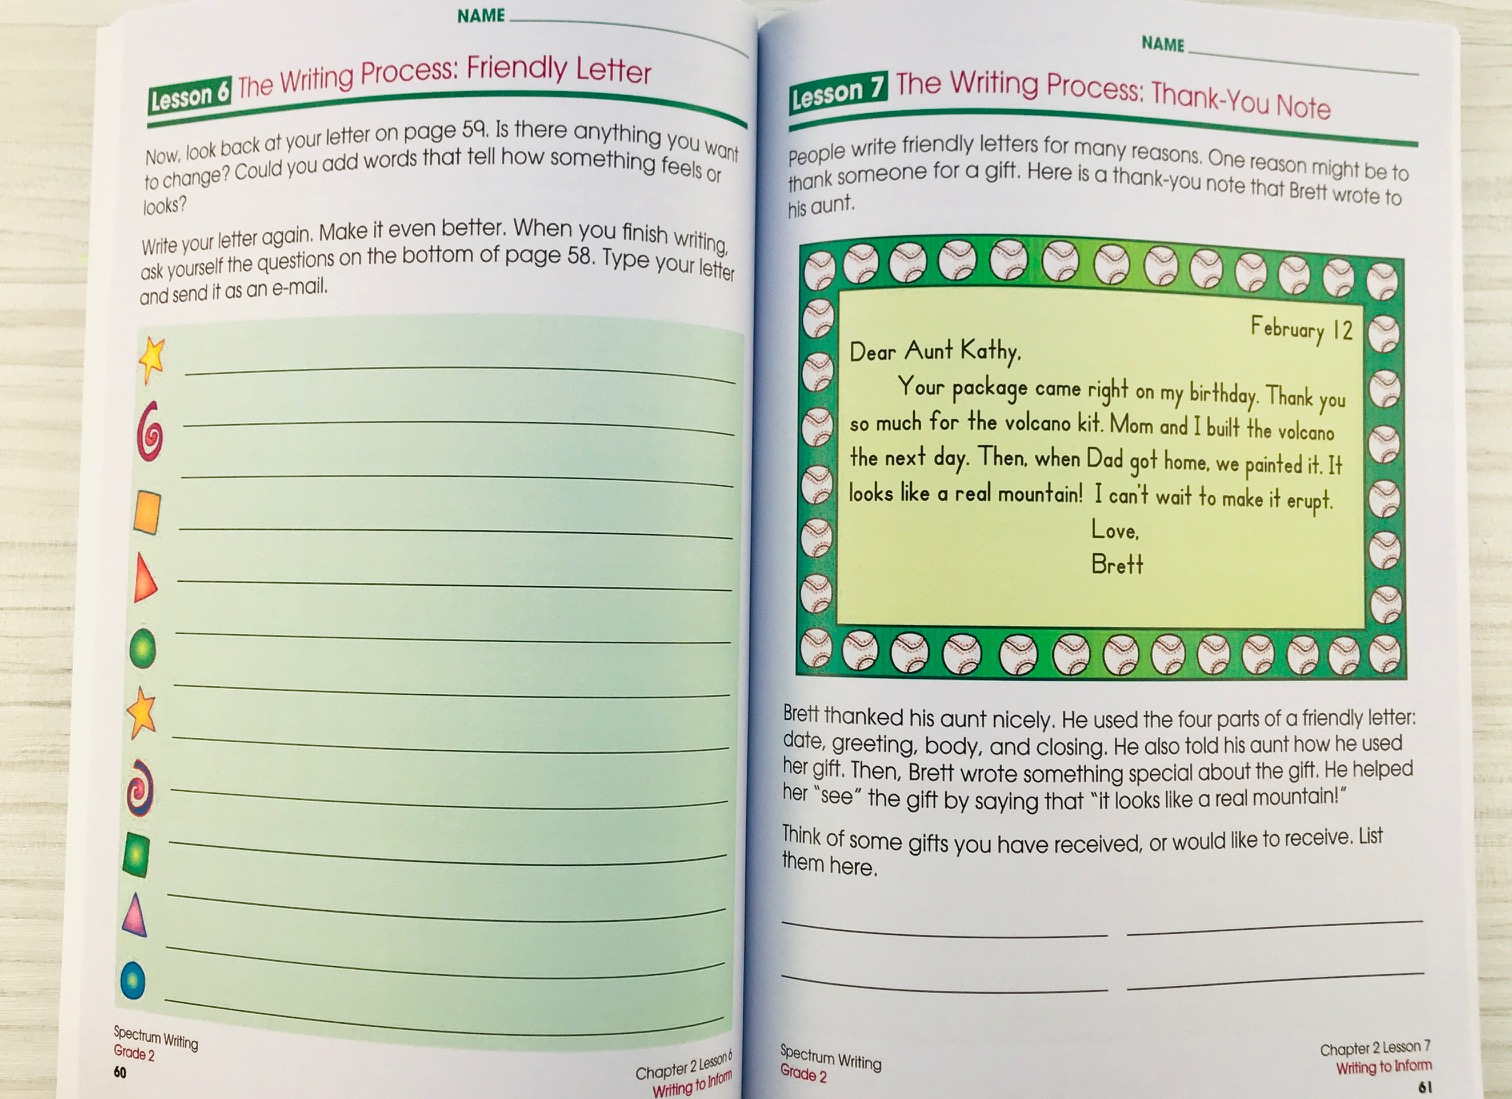 NAME
Lesson 6 The Writing Process: Friendly Letter
Now, look back at your letter on page 59. Is there anything you want
to change? Could you add words that tell how something feels or
looks?
Write your letter again. Make it even better. When you finish writing,
ask yourself the questions on the bottom of page 58. Type your letter
and send it as an e-mail.
Spectrum Writing
Grade 2
60
Chapter 2 Lesson 6
Writing to Inform
NAME
Lesson 7 The Writing Process: Thank-You Note
People write friendly letters for many reasons. One reason might be to
thank someone for a gift. Here is a thank-you note that Brett wrote to
his aunt.
February 12
Dear Aunt Kathy,
Your package came right on my birthday. Thank you
so much for the volcano kit. Mom and I built the volcano
the next day. Then, when Dad got home, we painted it. It
looks like a real mountain! I can't wait to make it erupt.
Love,
Brett
Brett thanked his aunt nicely. He used the four parts of a friendly letter:
date, greeting, body, and closing. He also told his aunt how he used
her gift. Then, Brett wrote something special about the gift. He helped
her "see" the gift by saying that "it looks like a real mountain!"
Think of some gifts you have received, or would like to receive. List
them here.
Spectrum Writing
Grade 2
Chapter 2 Lesson 7
Writing to Inform
61